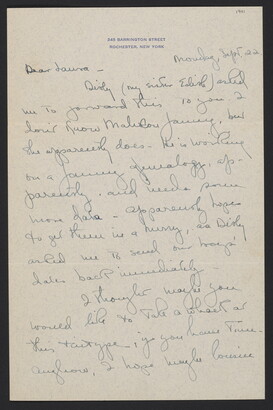 1941
445 BARRINGTON STREET
ROCHESTER, NEW YORK
Monday Sept 22
Dear Laura -
Disby (my sister Edith) asked
me to forward this to you. I
don't know Janney, but
she apparently does. He is working
on a Janney genealogy, ap-
parently, and needs some
more data - apparently hopes
to get them in a hurry, as Disby
asked me to send our boys'
dates back immediately -
I thought maybe you
would like to take a whack at
this, if you have time.
Anyhow, I hope maybe